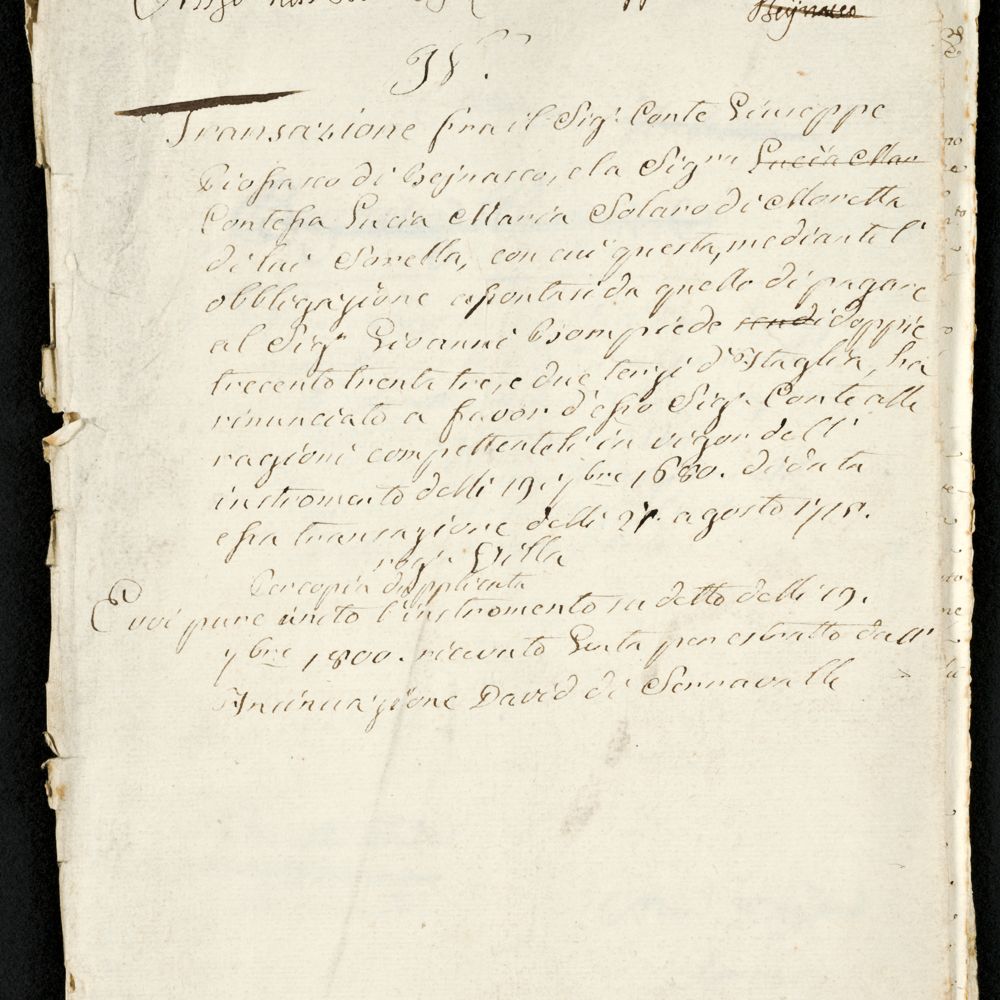 Transazione fra il Sig.r Conte Giuseppe
Piossasco di Bejnasco, e la Sig.ra Lucia Mar
Contessa Lucia Maria Solaro di Moretta
di lui Sorella, con cui questa, mediante l'
obbligazione da quello di pagare
al Sig.r Giovanni Bsompiede doppie
trecento trenta tre, e due terzi d'Ittaglia, ha
rinunciato a favor d'esso Sig.r Conte alle
ragioni competteteli in vigor dell'
instromento delli 19. 7bre 1680. di data
essa transazione delli agosto 1718.
rog.a Grilla
Per copia
E voi pure unito l'instromento su detto delli 19.
7bre 1800. ricevuto per estratto dall'
Insinuazione David di Serravalle